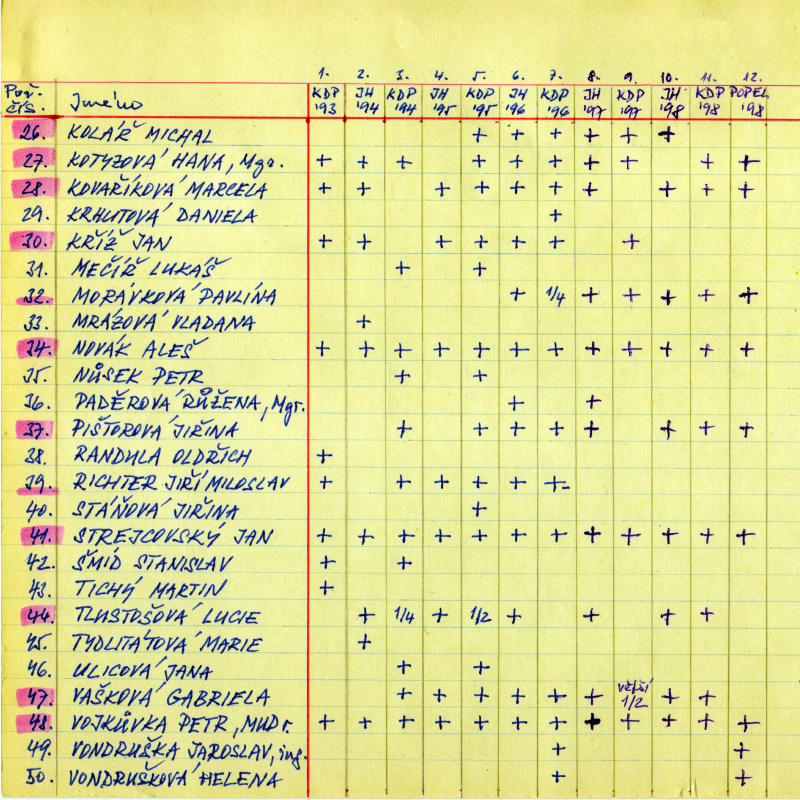 1. 2. 3. 4. 5. 6. 7. 8. 9. 10. 11. 12.
Poř. čís. Jméno KDP '93 JH '94 KDP '94 JH '95 KDP '95 JH '96 KDP '96 JH '97 KDP '97 JH '98 KDP '98 POPEL '98
26. KOLÁŘ MICHAL + + + + + +
27. KOTYZOVÁ HANA, Mgr. + + + + + + + + + +
28. KOVAŘÍKOVÁ MARCELA + + + + + + + + + +
29. KRHUTOVÁ DANIELA +
30. KŘÍŽ JAN + + + + + + +
31. MEČÍŘ LUKÁŠ + +
32. MORÁVKOVÁ PAVLÍNA + 1/4 + + + + +
33. MRÁZOVÁ VLADANA +
34. NOVÁK ALEŠ + + + + + + + + + + + +
35. NŮSEK PETR + +
36. PADĚROVÁ RŮŽENA, Mgr. + +
37. PIŠTOROVÁ JIŘINA + + + + + + + +
38. RANDULA OLDŘICH +
39. RICHTER JIŘÍ MILOSLAV + + + + + +
40. STÁŇOVÁ JIŘINA +
41. STREJCOVSKÝ JAN + + + + + + + + + + + +
42. ŠMÍD STANISLAV + +
43. TICHÝ MARTIN +
44. TLUSTOŠOVÁ LUCIE + 1/4 + 1/2 + + + +
45. TYDLITÁTOVÁ MARIE +
46. ULICOVÁ JANA + +
47. VAŠKOVÁ GABRIELA + + + + + + větší 1/2 + +
48. VOJKŮVKA PETR, MUDr. + + + + + + + + + + + +
49. VONDRUŠKA JAROSLAV, ing. + +
50. VONDRUŠKOVÁ HELENA + +